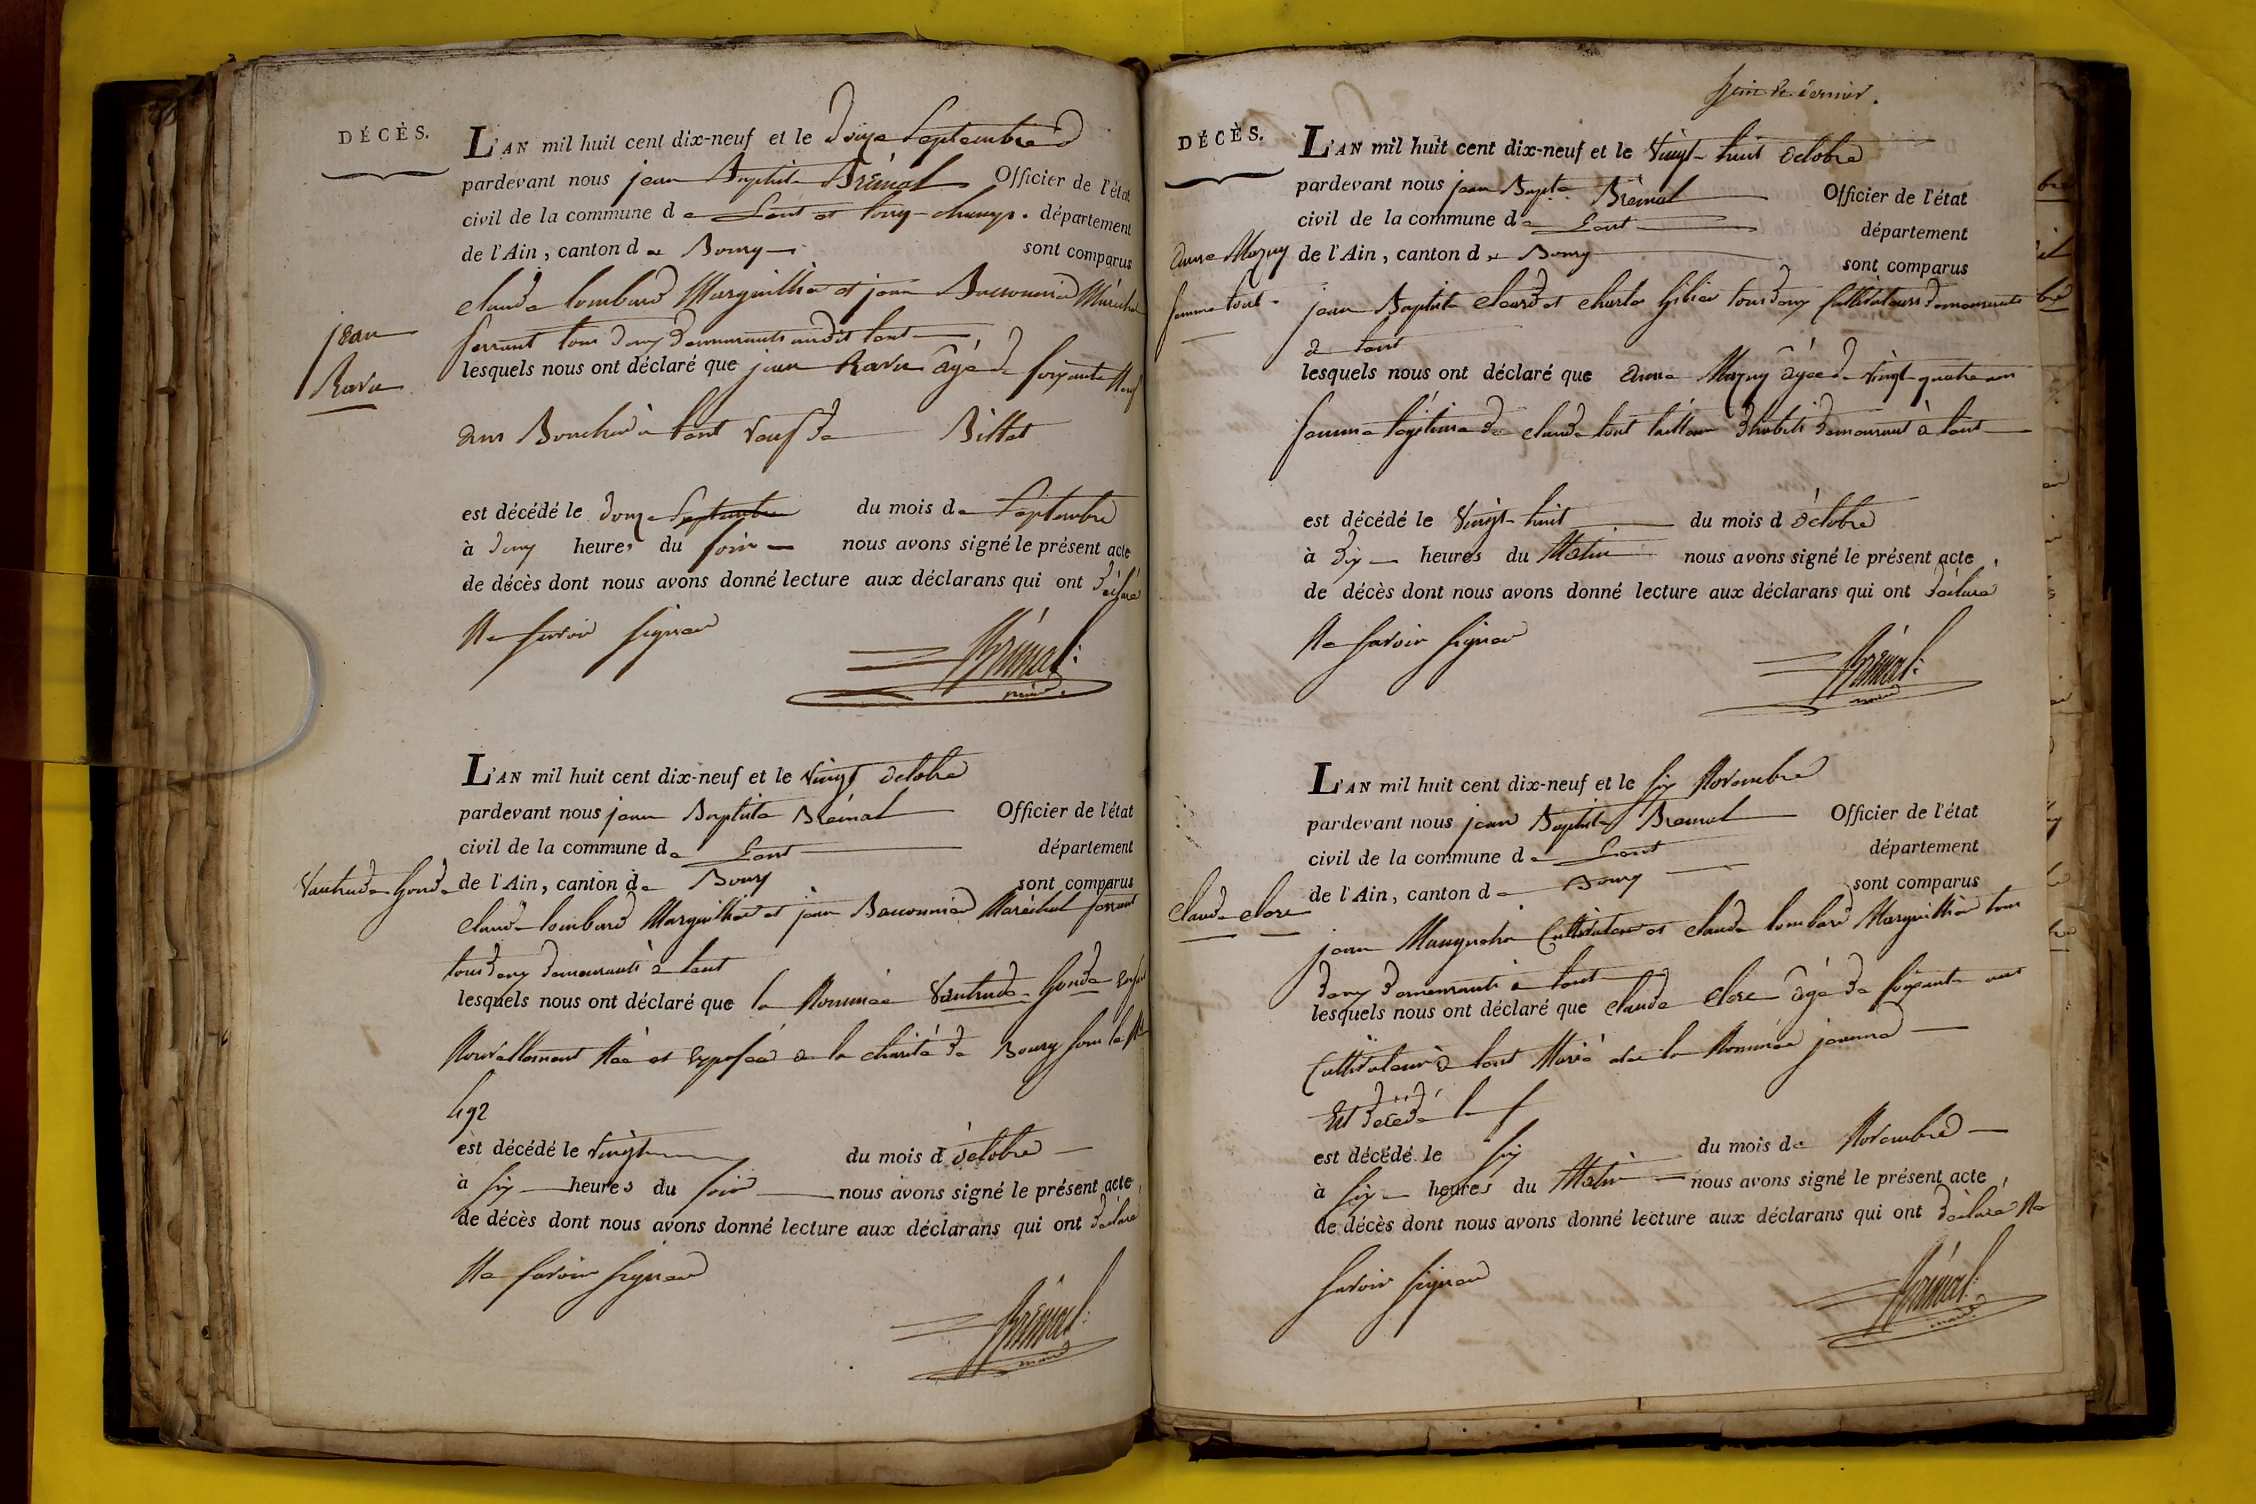 DÉCÈS.
L'AN mil huit cent dix-neuf et le Douze Septembre
pardevant nous jean Baptiste Brémal Officier de l'état
civil de la commune de Lent et longchamp. département
de l'Ain, canton de Bourg sont comparus
claude lombard Marguillier et jean Maréchal
ferrant tous deux demeurants audit lent
jean
Ravu
lesquels nous ont déclaré que jean Ravu âgé de soixante Neuf
ans à lent veuf de Billet
est décédé le douze Septembre du mois de Septembre
à deux heures du soir nous avons signé le présent acte
de décès dont nous avons donné lecture aux déclarans qui ont déclaré
Ne savoir signer
Brémal
maire
L'AN mil huit cent dix-neuf et le vingt octobre
pardevant nous jean Baptiste Brémal Officier de l'état
civil de la commune de Lent département
Vautrude Gonde
de l'Ain, canton de Bourg sont comparus
claude lombard Marguillier et jean Maréchal ferrant
tous deux demeurants à lent
lesquels nous ont déclaré que la Nommée Vautrude Gonde enfant
Nouvellement Née et Exposée a la charité de Bourg sous le N°
492
est décédé le vingt du mois d'octobre
à six heures du soir nous avons signé le présent acte,
de décès dont nous avons donné lecture aux déclarans qui ont déclaré
Ne savoir signer
Brémal
maire
dernier.
DÉCÈS.
L'AN mil huit cent dix-neuf et le Vingt-huit octobre
pardevant nous jean Bapte Brémal Officier de l'état
civil de la commune de Lent département
Anne Mazuy
femme tout.
de l'Ain, canton de Bourg sont comparus
jean Baptiste et charles tous deux Cultivateurs demeurants
a lent
lesquels nous ont déclaré que Anne Mazuy âgée de vingt-quatre ans
femme légitime de claude tout tailleur d'habits demeurant à lent
est décédé le Vingt-huit du mois d'octobre
à dix heures du Matin nous avons signé le présent acte
de décès dont nous avons donné lecture aux déclarans qui ont déclaré
Ne savoir signer
Brémal
maire
L'AN mil huit cent dix-neuf et le six Novembre
pardevant nous jean Baptiste Bremal Officier de l'état
civil de la commune de Lent département
de l'Ain, canton de Bourg sont comparus
claude clerc
jean Cultivateur et claude lombard Marguillier tous
deux demeurants à lent
lesquels nous ont déclaré que claude clerc âgé de soixante ans
Cultivateur à lent Marié avec la Nommée jeanne
est décédé le
est décédé le six du mois de Novembre
à six heures du Matin nous avons signé le présent acte,
de décès dont nous avons donné lecture aux déclarans qui ont déclaré Ne
savoir signer
Brémal
maire